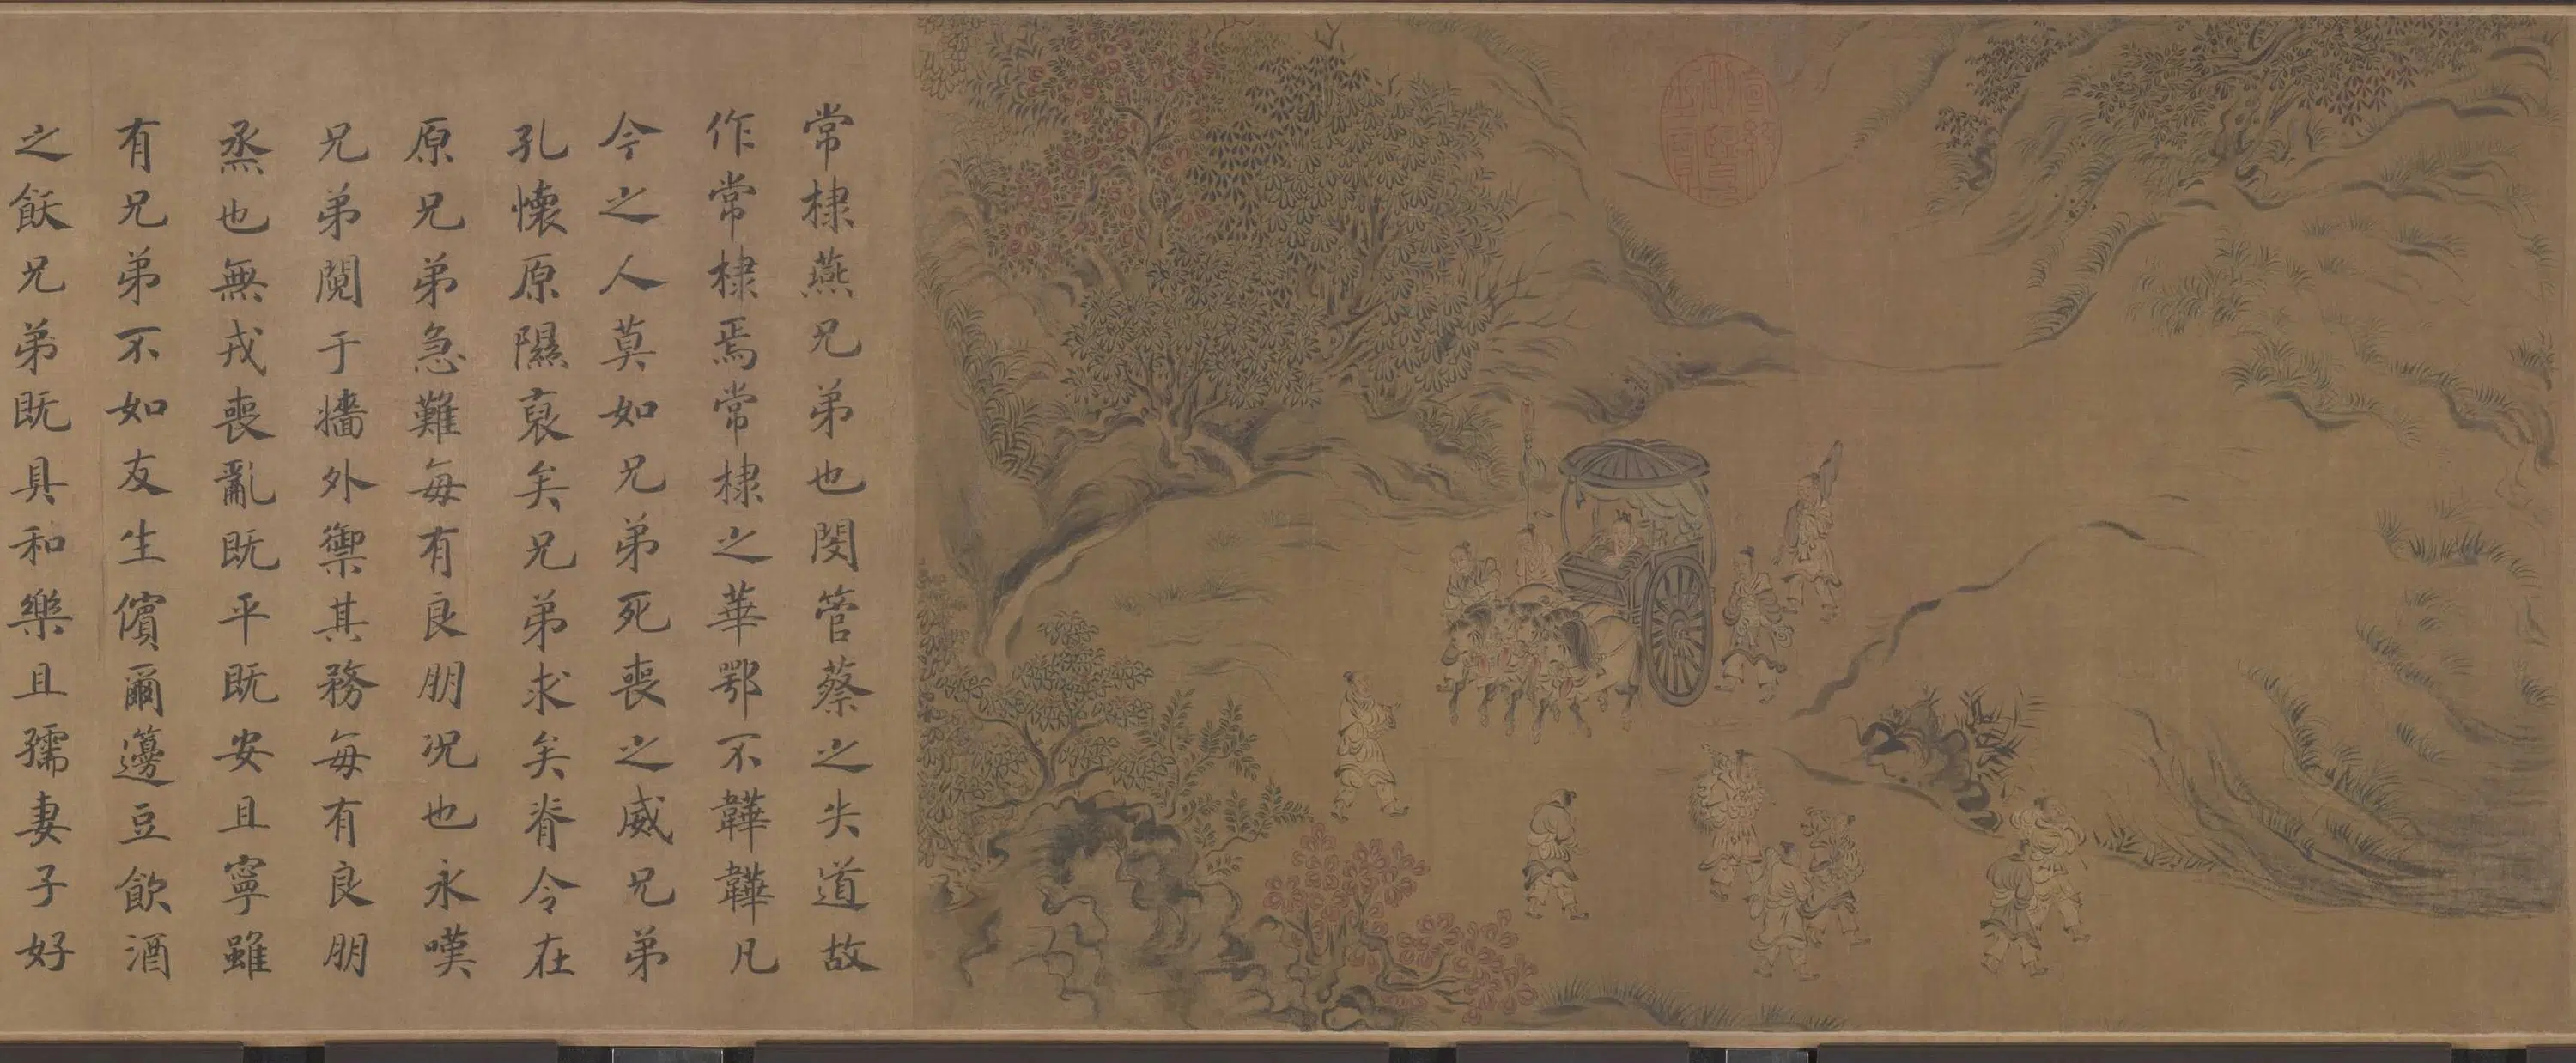 常棣燕兄弟也閔管蔡之失道故
作常棣焉常棣之華鄂不韡韡凡
今之人莫如兄弟死喪之威兄弟
孔懐原隰裒矣兄弟求矣脊令在
原兄弟急難每有良朋况也永嘆
兄弟䦧于牆外禦其務每有良朋
烝也無戎喪亂既平既安且寧雖
有兄弟不如友生儐爾籩豆飲酒
之飫兄弟既具和樂且孺妻子好